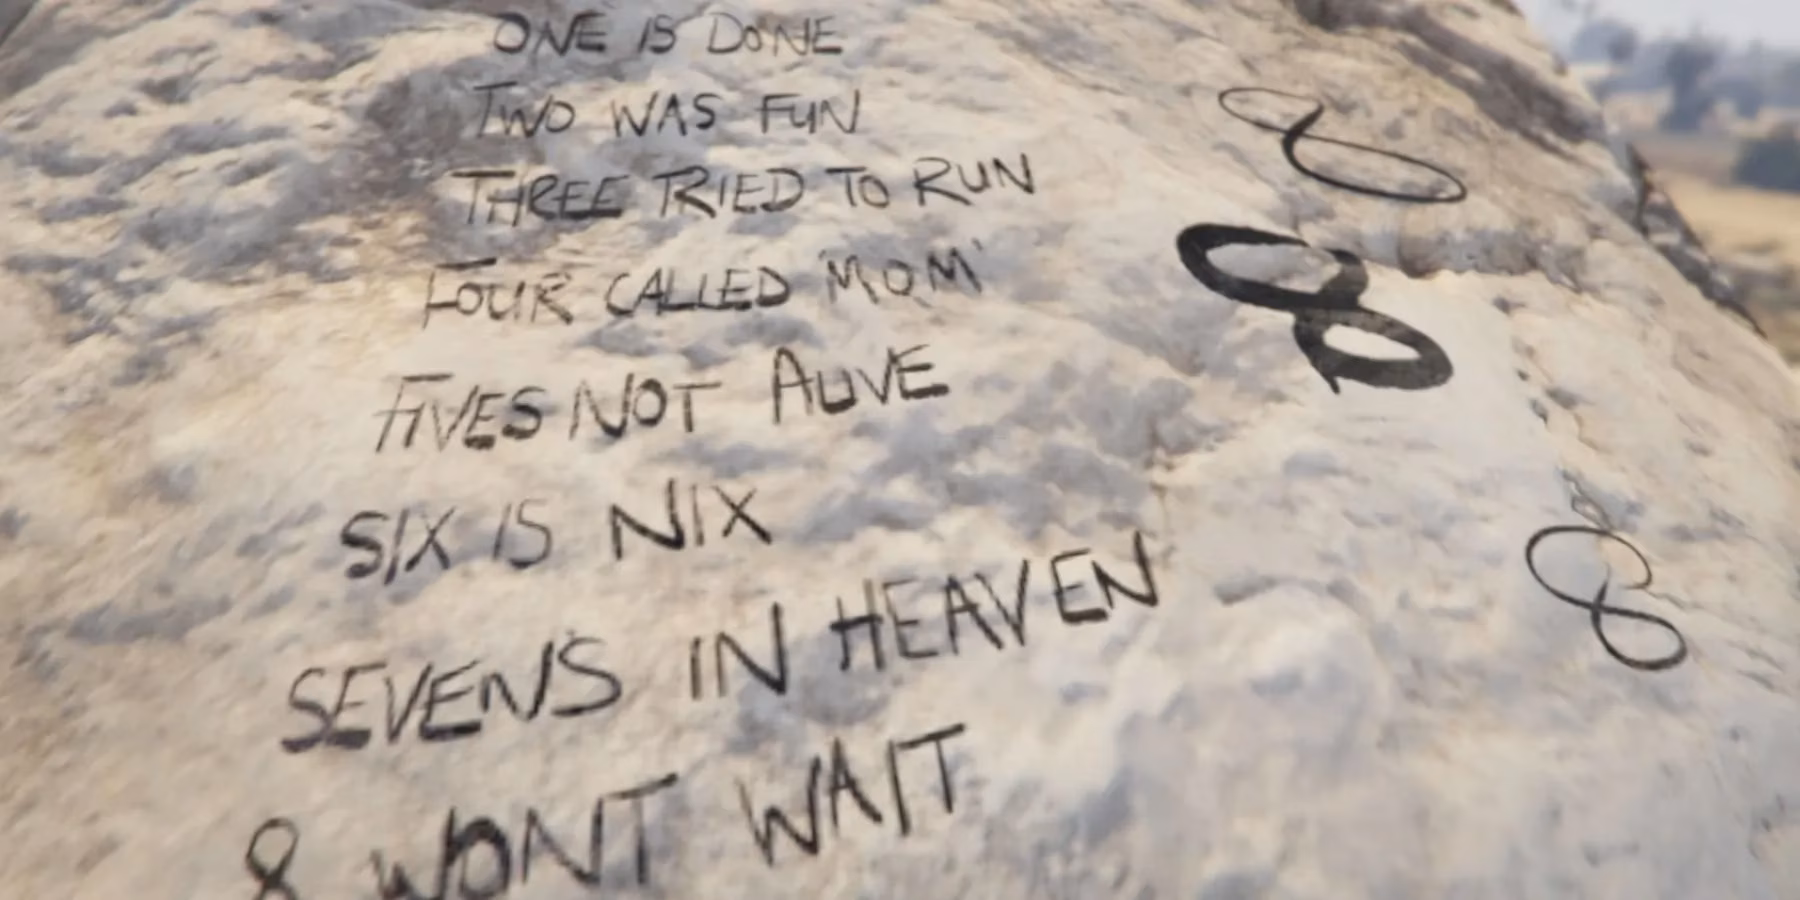 ONE IS DONE
TWO WAS FUN
THREE TRIED TO RUN
FOUR CALLED 'MOM'
FIVES NOT ALIVE
SIX IS NIX
SEVENS IN HEAVEN
8 WONT WAIT
8
8
8